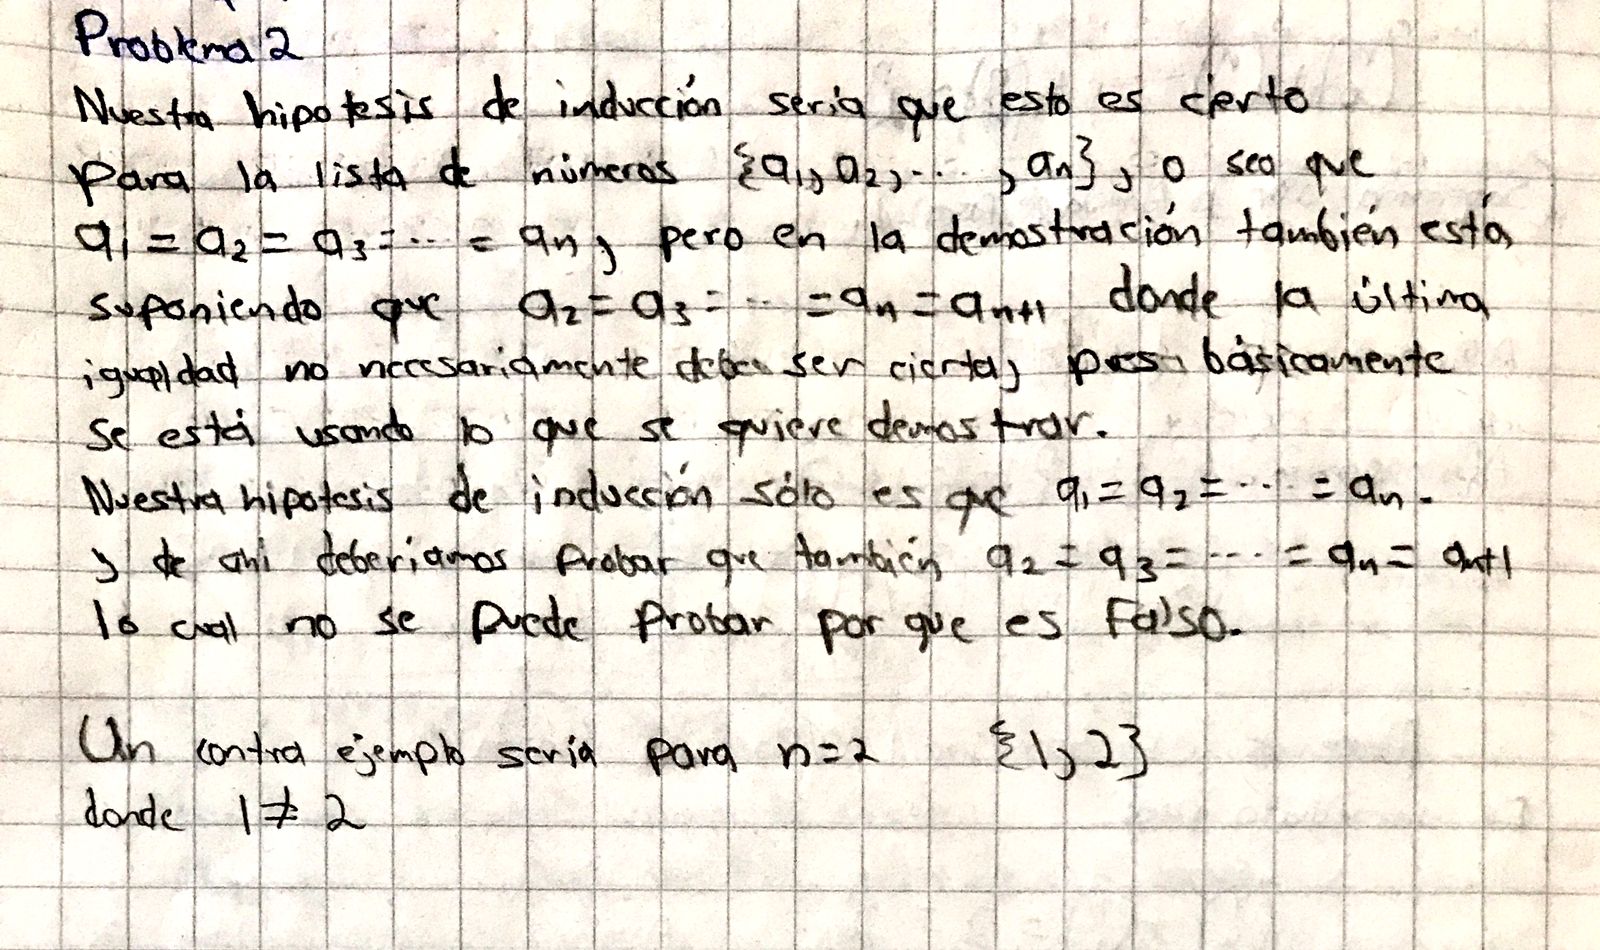 Problema 2
Nuestra hipotesis de inducción sería que esto es cierto
para la lista de números {a₁, a₂, ... , aₙ}, o sea que
a₁ = a₂ = a₃ = ... = aₙ, pero en la demostración también está
suponiendo que a₂ = a₃ = ... = aₙ = aₙ₊₁ donde la última
igualdad no necesariamente debe ser cierta, pues básicamente
se está usando lo que se quiere demostrar.
Nuestra hipotesis de inducción sólo es que a₁ = a₂ = ... = aₙ.
y de ahí deberíamos probar que también a₂ = a₃ = ... = aₙ = aₙ₊₁
lo cual no se puede probar por que es falso.
Un contra ejemplo sería para n=2 {1, 2}
donde 1 ≠ 2